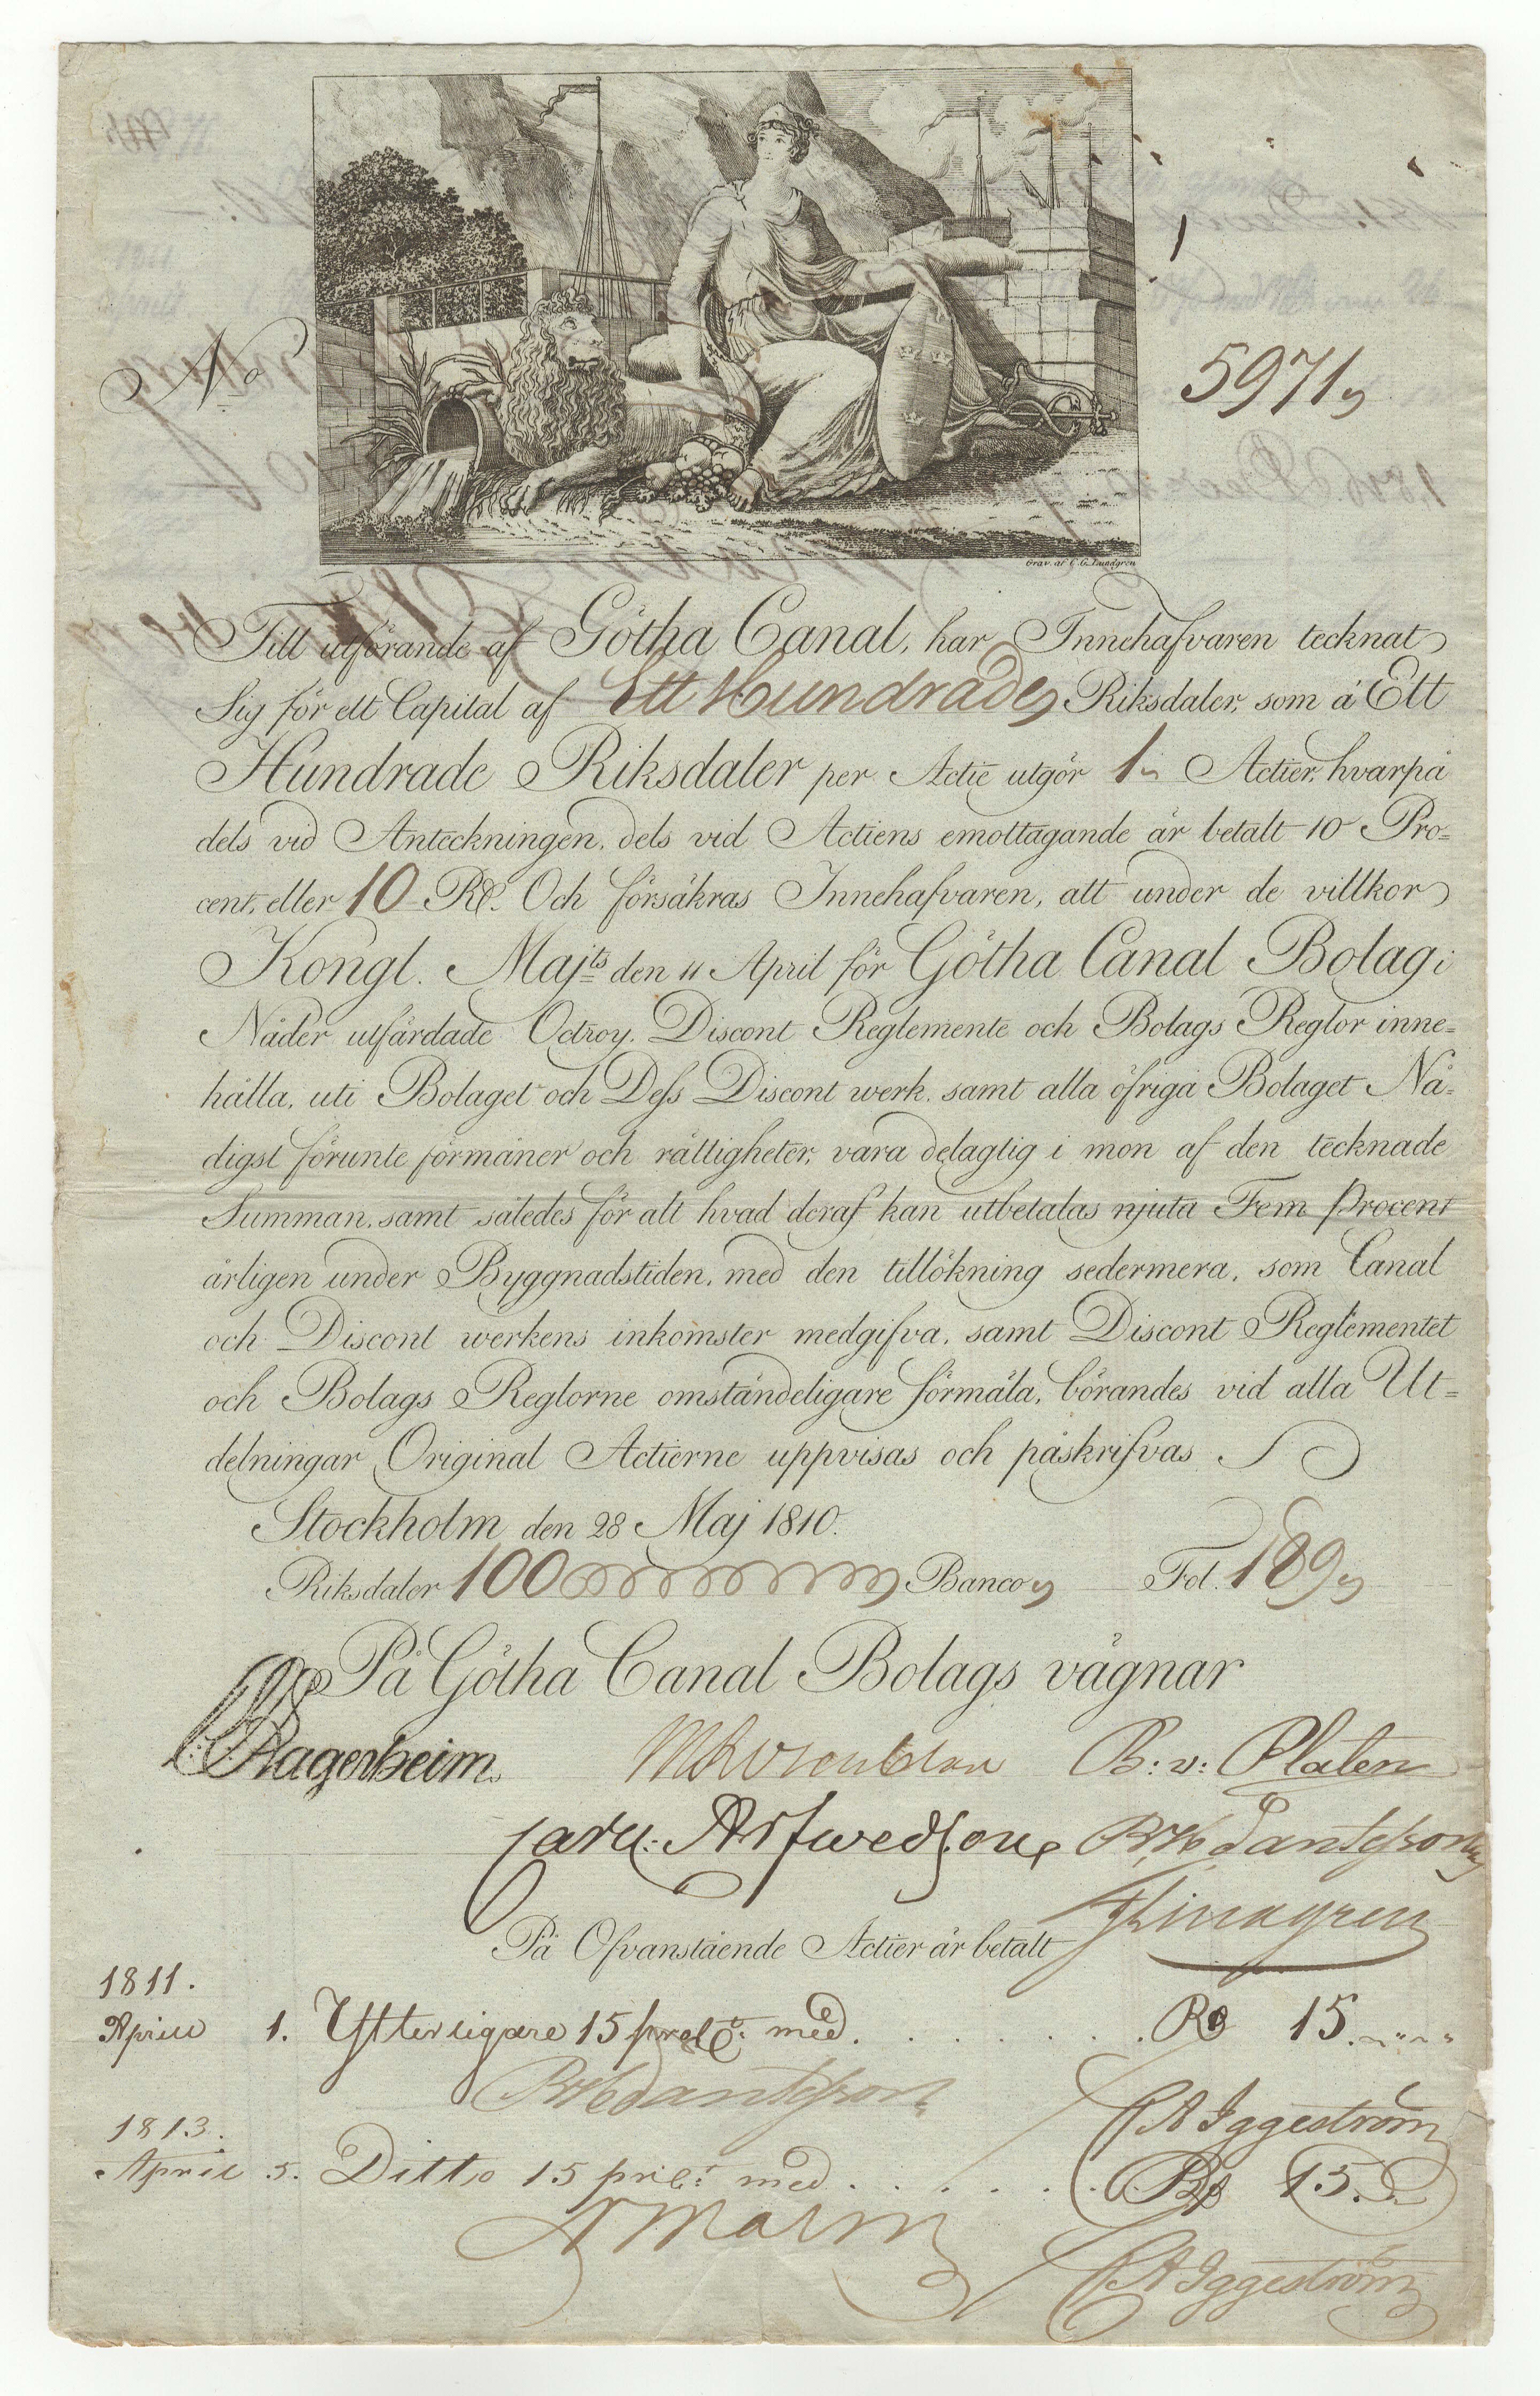 No 5971
Grav. af C.G. Lundgren
Till utförande af Götha Canal, har Innehafvaren tecknat
Sig för ett Capital af Ett Hundrade Riksdaler, som à Ett
Hundrade Riksdaler per Actie utgör 1 Actier, hvarpå
dels vid Anteckningen, dels vid Actiens emottagande är betalt 10 Pro=
cent, eller 10 Rd. Och försäkras Innehafvaren, att under de villkor
Kongl. Majts den 11 April för Götha Canal Bolag i
Nåder utfärdade Octroy, Discont Reglemente och Bolags Reglor inne=
hålla, uti Bolaget och Dess Discont werk, samt alla öfriga Bolaget Nå=
digst förunte förmåner och rättigheter, vara delagtig i mon af den tecknade
Summan, samt således för alt hvad deraf kan utbetalas njuta Fem Procent
årligen under Byggnadstiden, med den tillökning sedermera, som Canal
och Discont werkens inkomster medgifva, samt Discont Reglementet
och Bolags Reglorne omständeligare förmäla, börandes vid alla Ut=
delningar Original Actierne uppvisas och påskrifvas
Stockholm den 28 Maj 1810.
Riksdaler 100 Banco Fol. 189
På Götha Canal Bolags vägnar
Lagerheim B: v: Platen
Carl: Arfwedson B H Santesson
Lindgren
På Ofvanstående Actier är betalt
1811.
April 1. Ytterligare 15 prct. med . . . . . . . Rd 15.
B H Santesson C A Iggeström
1813.
April 5. Ditto 15 prct. med . . . . . . . Rd 15.
A Malm
C A Iggeström